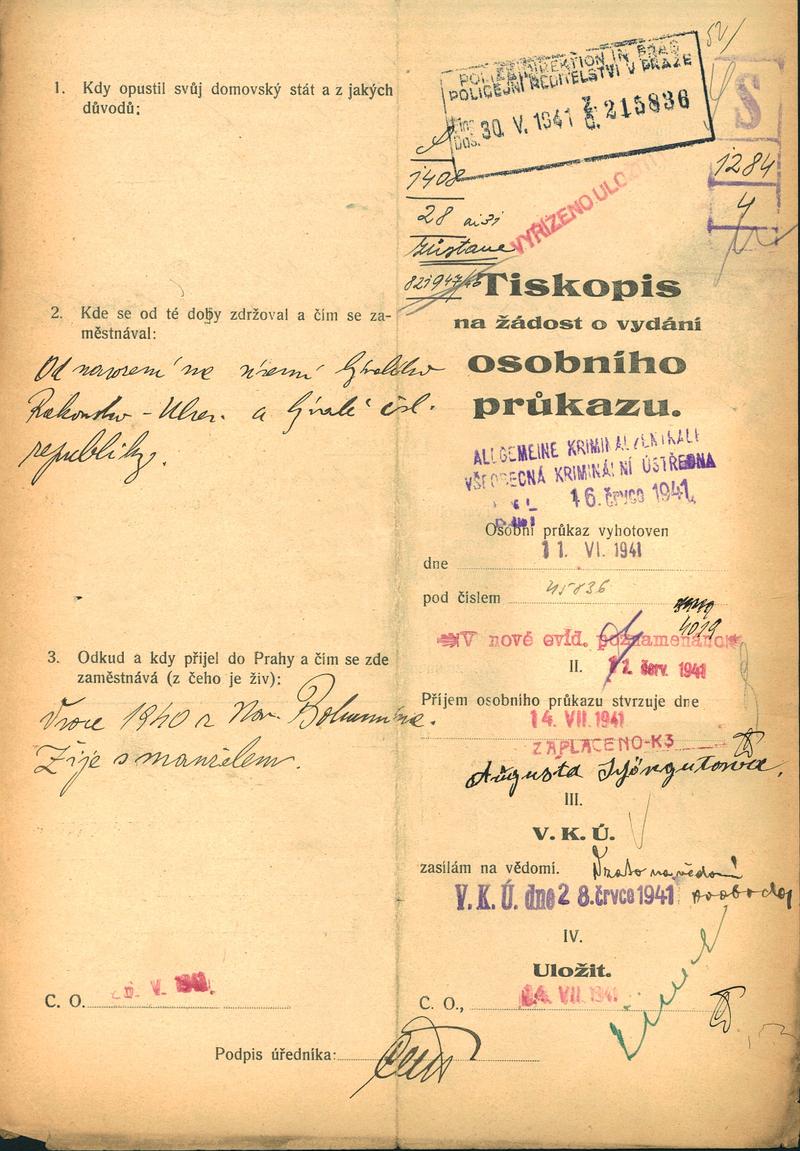 1. Kdy opustil svůj domovský stát a z jakých
důvodů:
2. Kde se od té doby zdržoval a čím se za-
městnával:
Od narození na území bývalého
Rakouska-Uher. a bývalé čsl.
republiky.
3. Odkud a kdy přijel do Prahy a čím se zde
zaměstnává (z čeho je živ):
V roce 1940 z Nov. Bohumína.
Žije s manželem.
C. O.
V. 1941
Podpis úředníka:
POLIZEIDIREKTION IN PRAG
POLICEJNÍ ŘEDITELSTVÍ V PRAZE
30. V. 1941 Z. č. 215836
S
1284
4
1408
28
zůstane
VYŘÍZENO ULOŽIT
Tiskopis
na žádost o vydání
osobního
průkazu.
ALLGEMEINE KRIMINALZENTRALE
VŠEOBECNÁ KRIMINÁLNÍ ÚSTŘEDNA
16. črvce 1941
Osobní průkaz vyhotoven
dne 11. VI. 1941
pod číslem 45836
4019
V nové evid. poznamenáno
II. červ. 1941
Příjem osobního průkazu stvrzuje dne
14. VII. 1941
ZAPLACENO-K3
Augusta
III.
V. K. Ú.
zasílám na vědomí. Vzato na vědomí
V. K. Ú. dne 28. črvce 1941 svoboda
IV.
Uložit.
C. O., 24. VII. 1941